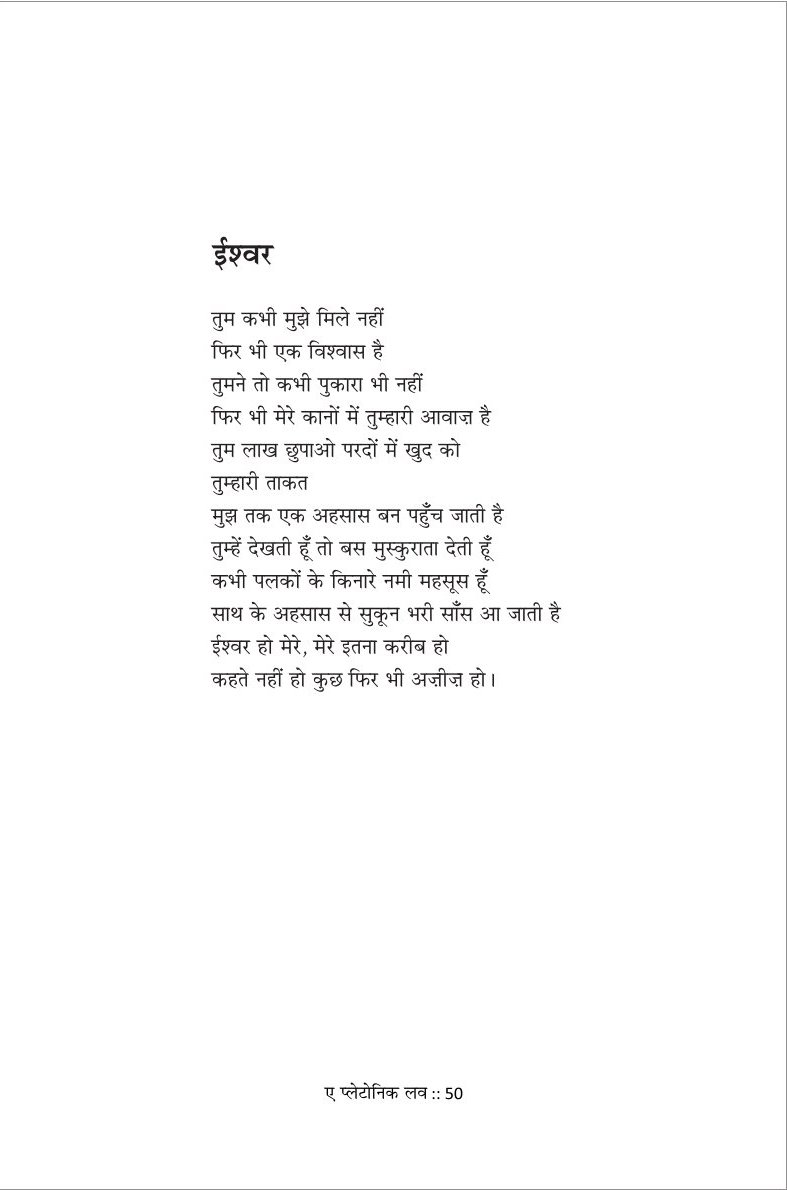 ईश्वर
तुम कभी मुझे मिले नहीं
फिर भी एक विश्वास है
तुमने तो कभी पुकारा भी नहीं
फिर भी मेरे कानों में तुम्हारी आवाज़ है
तुम लाख छुपाओ परदों में खुद को
तुम्हारी ताकत
मुझ तक एक अहसास बन पहुँच जाती है
तुम्हें देखती हूँ तो बस मुस्कुराता देती हूँ
कभी पलकों के किनारे नमी महसूस हूँ
साथ के अहसास से सुकून भरी साँस आ जाती है
ईश्वर हो मेरे, मेरे इतना करीब हो
कहते नहीं हो कुछ फिर भी अज़ीज़ हो।
ए प्लेटोनिक लव :: 50